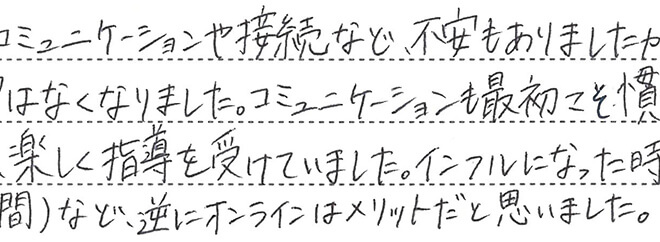 コミュニケーションや接続など、不安もありましたが
はなくなりました。コミュニケーションも最初こそ慣
、楽しく指導を受けていました。インフルになった時
間)など、逆にオンラインはメリットだと思いました。